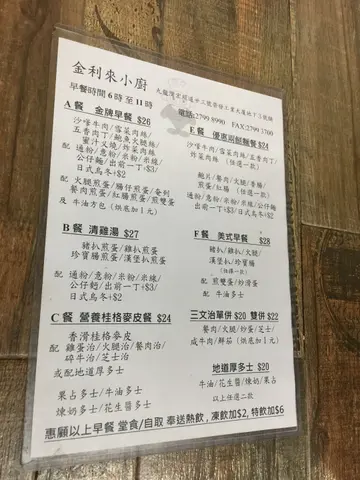 金利來小廚
早餐時間6時至11時
電話:2799 8990 FAX:2799 3700
A餐 金牌早餐 $26
沙嗲牛肉/雪菜肉絲/
五香肉丁/鮑魚火腿絲/
蜜汁叉燒/炸菜肉絲
配 通粉/意粉/米粉/米線/
公仔麵/出前一丁+$3/
日式烏冬+$2
配 火腿煎蛋/腸仔煎蛋/
餐肉煎蛋/紅腸煎蛋/煎雙蛋
及 牛油方包(烘底加1元)
B餐 清雞湯 $27
豬扒煎蛋/雞扒煎蛋
珍寶腸煎蛋/漢堡扒煎蛋
配 通粉/意粉/米粉/米線/
公仔麵/出前一丁+$3/
日式烏冬+$2
C餐 營養桂格麥皮餐 $24
香滑桂格麥皮
配 雞蛋治/火腿治/餐肉治/
碎牛治/芝士治
或配地道厚多士
果占多士/牛油多士
煉奶多士/花生醬多士
E餐 優惠兩餸麵餐 $24
沙嗲牛肉/雪菜肉絲/五香肉丁/
炸菜肉絲 (任選一款)
鮑片/餐肉/火腿/香腸/
煎蛋/紅腸 (任選一款)
通粉/意粉/米粉/米線/公仔麵
出前一丁+$3/日式烏冬+$2
F餐 美式早餐 $28
豬扒/雞扒/
漢堡扒/珍寶腸
(任擇一款)
配 煎雙蛋/炒滑蛋
配 牛油多士
三文治單併 $20 雙併 $22
餐肉/火腿/炒蛋/芝士/
咸牛肉/鮮茄 (烘底加1元)
地道厚多士 $20
牛油/花生醬/煉奶/果占
以上任選二款
惠顧以上早餐 堂食/自取 奉送熱飲, 凍飲加$2, 特飲加$6